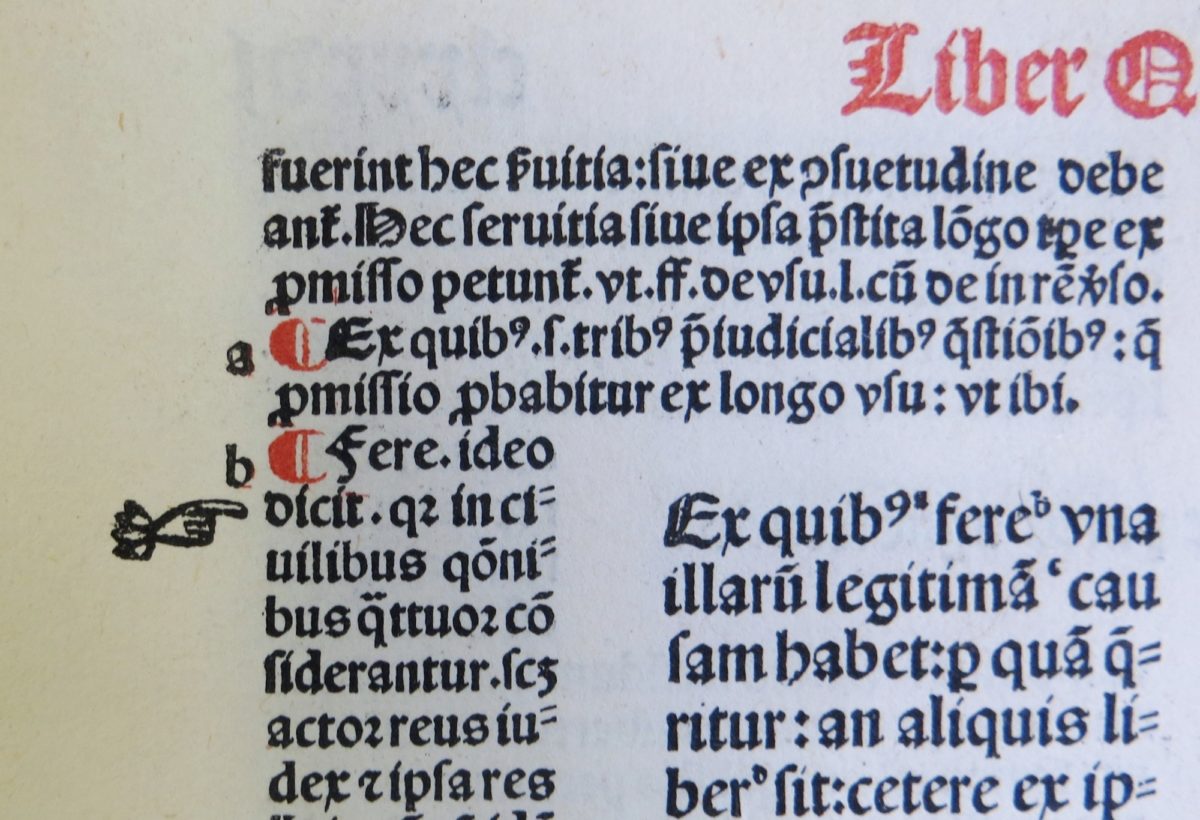 Liber Q
fuerint hec ẜuitia:siue ex ꝯsuetudine debe
anť. Hec seruitia siue ipsa p̄stita lōgo tꝑe ex
ꝓmisso petunť. vt. ff. de vsu. l. cū de in rē ꝟso.
a ⸿ Ex quibꝰ. s. tribꝰ p̄iudicialibꝰ q̄stiōibꝰ: q̄
ꝓmissio ꝓbabitur ex longo vsu: vt ibi.
b ⸿ Fere. ideo
dicit. qꝛ in ci⸗
uilibus qōni⸗
bus q̈ttuoꝛ cō
siderantur. scꝫ
actoꝛ reus iu⸗
dex ⁊ ipsa res
Ex quibꝰᵃ fereᵇ vna
illarū legitimā ᶜcau
sam habet: ꝑ quā q̄⸗
ritur: an aliquis li⸗
berᵈ sit: cetere ex ip⸗